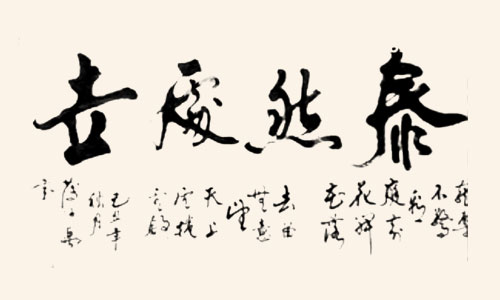 泰然處世
寵辱
不驚
看
庭前
花開
花落
去留
無意
望
天上
雲捲
雲舒
己丑年
秋月